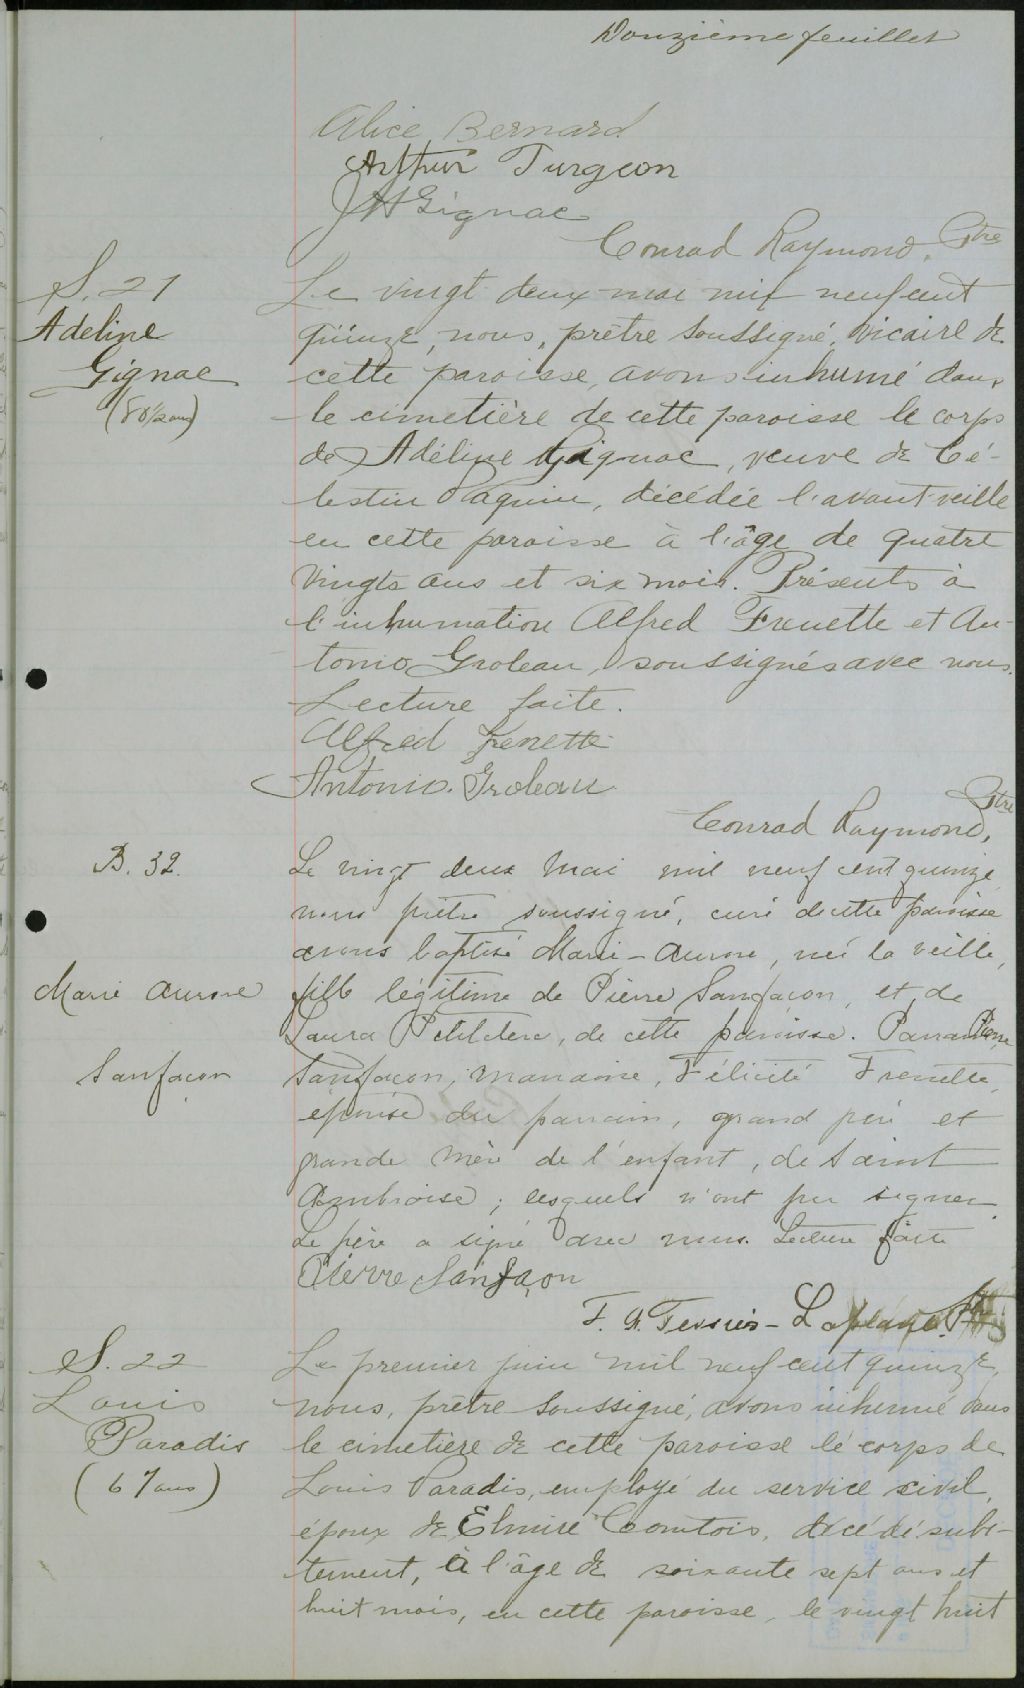 Douzième feuillet
Alice Bernard
Arthur Turgeon
J H Gignac
Conrad Raymond, Ptre
S. 21
Adeline
Gignac
(80½ ans)
Le vingt deux mai mil neuf cent
quinze, nous, prêtre soussigné, vicaire de
cette paroisse, avons inhumé dans
le cimetière de cette paroisse le corps
de Adéline Gignac, veuve de Cé-
lestin Paquin, décédée l'avant veille
en cette paroisse à l'âge de quatre
vingts ans et six mois. Présents à
l'inhumation Alfred Frenette et An-
tonio Groleau, soussignés avec nous.
Lecture faite.
Alfred Frenette
Antonio. Groleau
Conrad Raymond, Ptre
B. 32.
Marie Aurore
Sanfaçon
Le vingt deux Mai mil neuf cent quinze
nous prêtre soussigné, curé de cette paroisse
avons baptisé Marie-Aurore, née la veille,
fille légitime de Pierre Sanfaçon, et de
Laura Petitclerc, de cette paroisse. Parrain Pierre
Sanfaçon, marraine, Félicité Frenette,
épouse du parrain, grand père et
grande mère de l'enfant, de Saint
Ambroise; lesquels n'ont pu signer.
Le père a signé avec nous. Lecture faite
Pierre Sanfaçon
F. X. Tessier-Laplante, Ptre
S. 22
Louis
Paradis
(67 ans)
Le premier juin mil neuf cent quinze,
nous, prêtre soussigné, avons inhumé dans
le cimetière de cette paroisse le corps de
Louis Paradis, employé du service civil,
époux de Elmire Comtois, décédé subi-
tement, à l'âge de soixante sept ans et
huit mois, en cette paroisse, le vingt huit